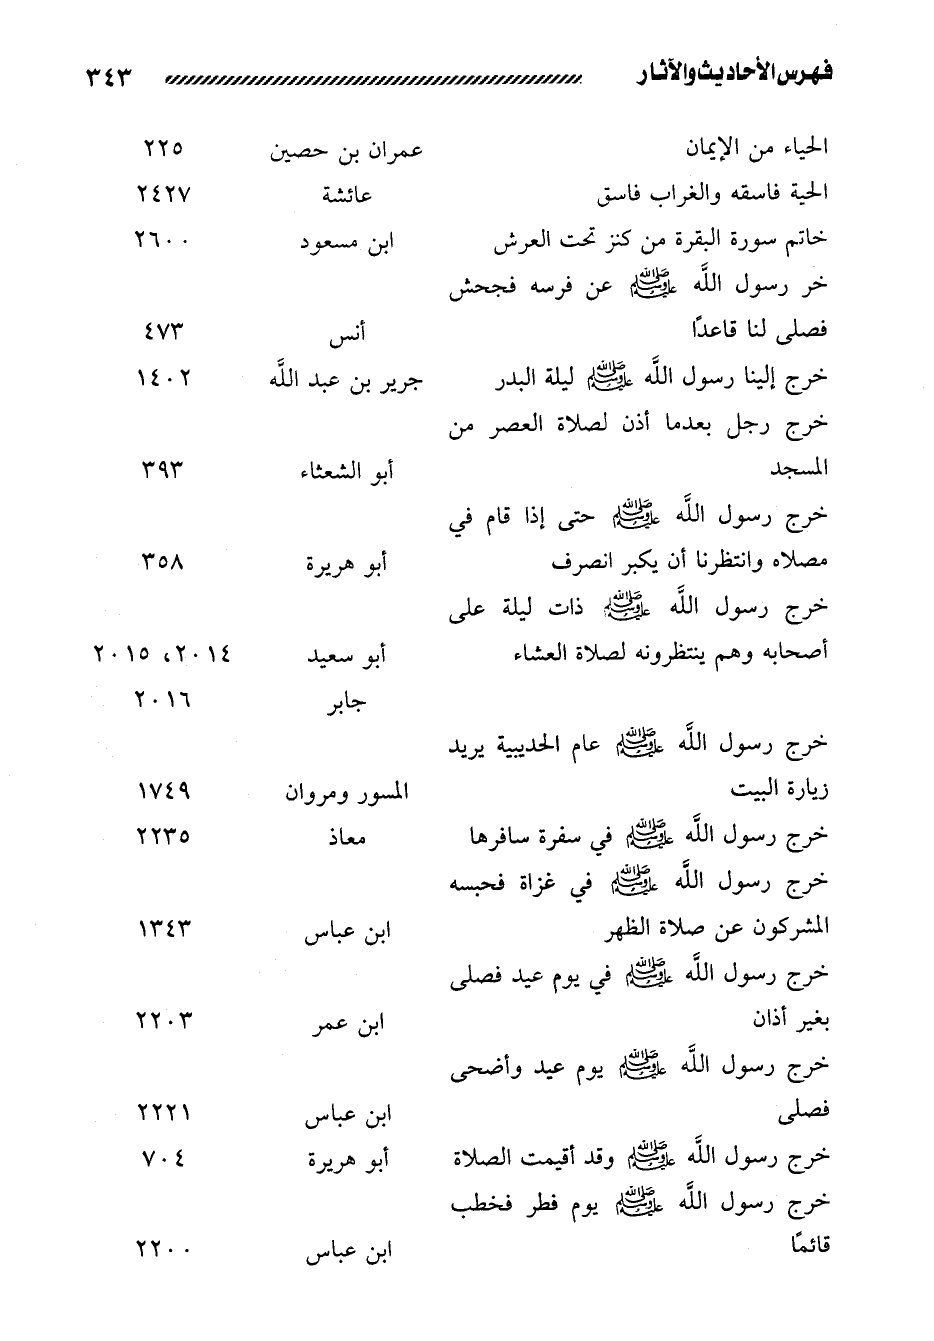 فهرس الأحاديث والآثار ٣٤٣
الحياء من الإيمان عمران بن حصين ٢٢٥
الحية فاسقه والغراب فاسق عائشة ٢٤٢٧
خاتم سورة البقرة من كنز تحت العرش ابن مسعود ٢٦٠٠
خر رسول اللَّه ﷺ عن فرسه فجحش
فصلى لنا قاعدًا أنس ٤٧٣
خرج إلينا رسول اللَّه ﷺ ليلة البدر جرير بن عبد اللَّه ١٤٠٢
خرج رجل بعدما أذن لصلاة العصر من
المسجد أبو الشعثاء ٣٩٣
خرج رسول اللَّه ﷺ حتى إذا قام في
مصلاه وانتظرنا أن يكبر انصرف أبو هريرة ٣٥٨
خرج رسول اللَّه ﷺ ذات ليلة على
أصحابه وهم ينتظرونه لصلاة العشاء أبو سعيد ٢٠١٤، ٢٠١٥
جابر ٢٠١٦
خرج رسول اللَّه ﷺ عام الحديبية يريد
زيارة البيت المسور ومروان ١٧٤٩
خرج رسول اللَّه ﷺ في سفرة سافرها معاذ ٢٢٣٥
خرج رسول اللَّه ﷺ في غزاة فحبسه
المشركون عن صلاة الظهر ابن عباس ١٣٤٣
خرج رسول اللَّه ﷺ في يوم عيد فصلى
بغير أذان ابن عمر ٢٢٠٣
خرج رسول اللَّه ﷺ يوم عيد وأضحى
فصلى ابن عباس ٢٢٢١
خرج رسول اللَّه ﷺ وقد أقيمت الصلاة أبو هريرة ٧٠٤
خرج رسول اللَّه ﷺ يوم فطر فخطب
قائمًا ابن عباس ٢٢٠٠